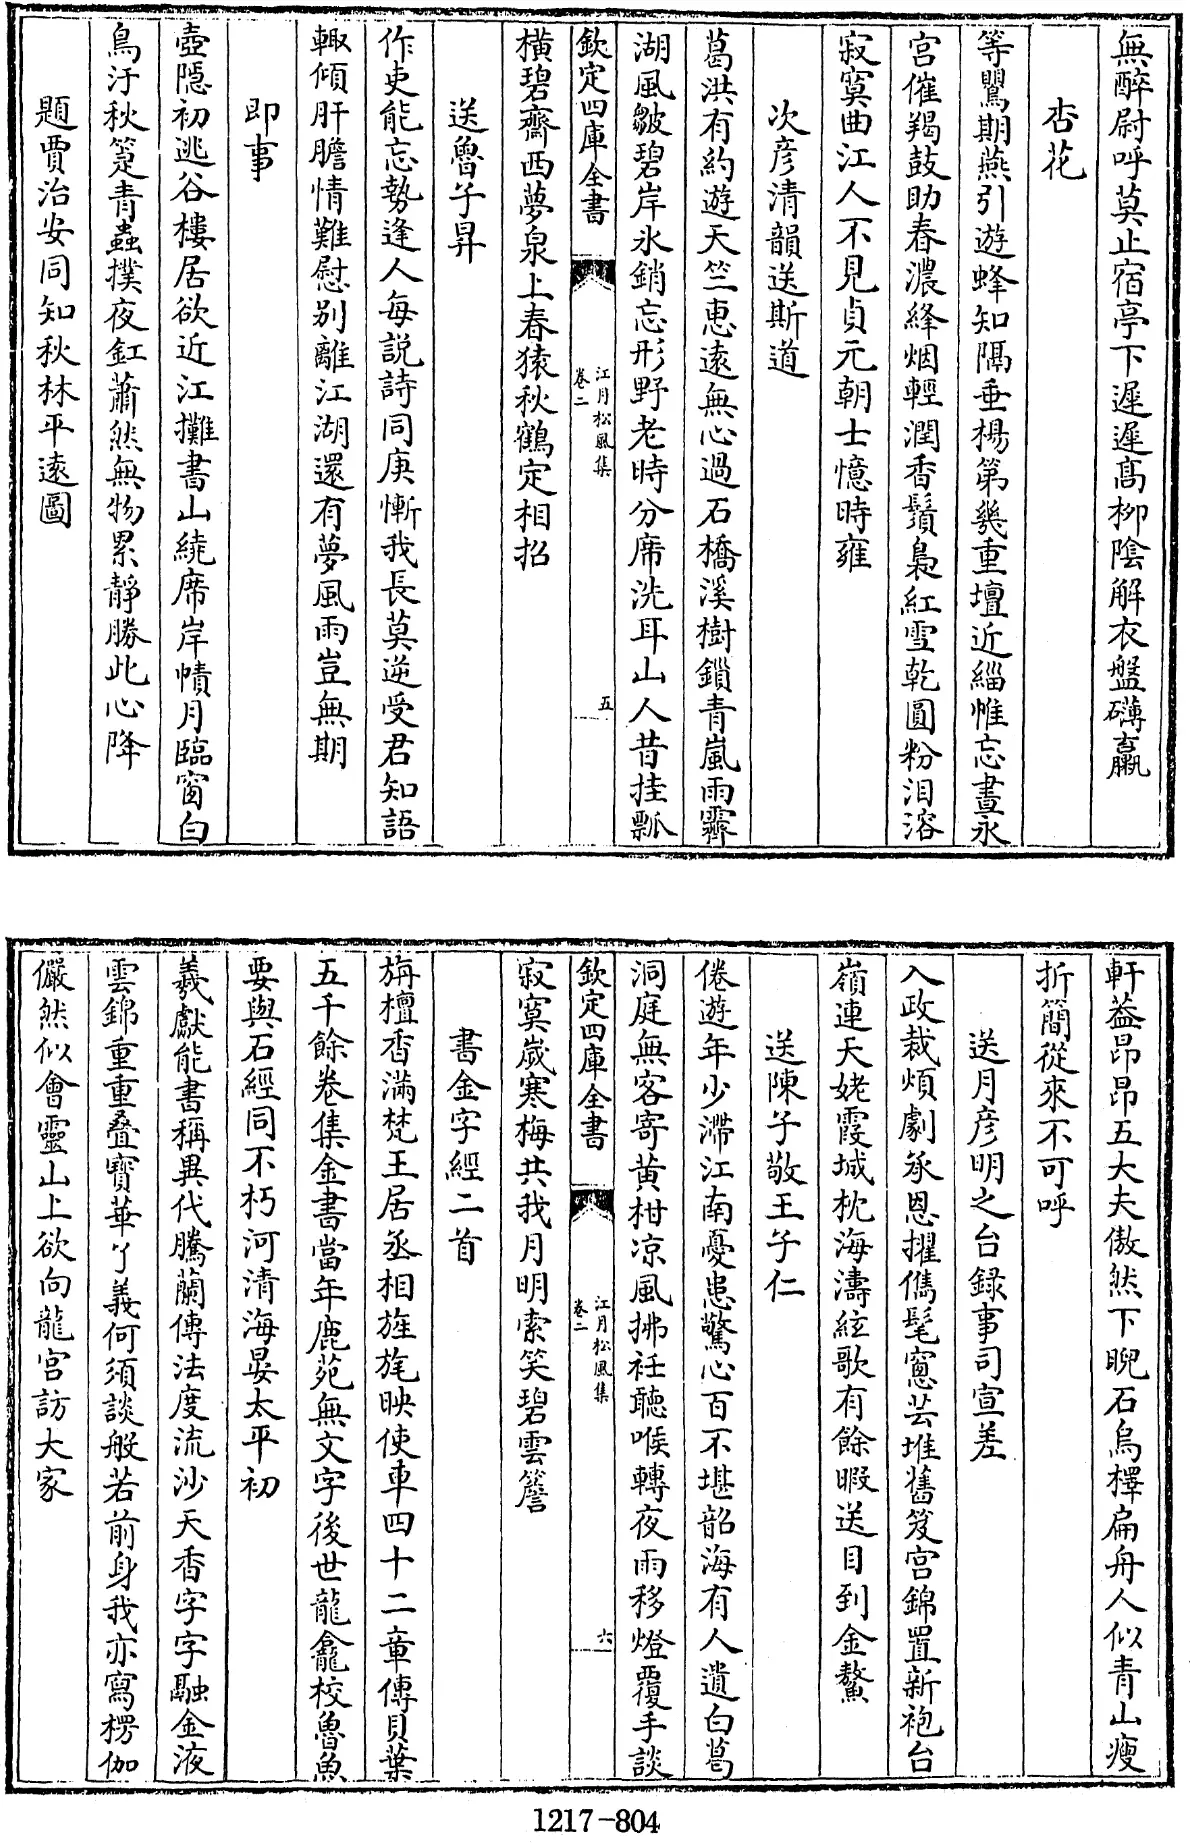 無醉尉呼莫止宿亭下遲遲髙柳陰解衣盤礴羸
杏花
等鸎期燕引遊蜂知隔垂楊第幾重壇近緇帷忘晝永
宫催羯鼓助春濃絳烟輕潤香鬚裊紅雪乾圓粉泪溶
寂寞曲江人不見貞元朝士憶時雍
次彦清韻送斯道
葛洪有約遊天竺惠遠無心過石橋溪樹鎖青嵐雨霽
湖風皺碧岸氷銷忘形野老時分席洗耳山人昔挂瓢
欽定四庫全書
江月松風集
卷二
五
橫碧齋西夢泉上春猿秋鶴定相招
送魯子昇
作吏能忘勢逢人每説詩同庚慚我長莫逆受君知語
輙傾肝膽情難慰别離江湖還有夢風雨豈無期
即事
壺隱初逃谷樓居欲近江攤書山繞席岸幘月臨窗白
鳥汙秋箑青蟲撲夜釭蕭然無物累靜勝此心降
題賈治安同知秋林平逺圖
軒葢昂昂五大夫傲然下睨石烏檡扁舟人似青山瘦
折簡從來不可呼
送月彦明之台録事司宣差
入政裁煩劇承恩擢儁髦窻芸堆舊笈宫錦置新袍台
嶺連天姥霞城枕海濤絃歌有餘暇送目到金鰲
送陳子敬王子仁
倦遊年少滯江南憂患驚心百不堪韶海有人遺白葛
洞庭無客寄黄柑凉風拂衽聽喉轉夜雨移燈覆手談
欽定四庫全書
江月松風集
卷二
六
寂寞嵗寒梅共我月明索笑碧雲簷
書金字經二首
旃檀香滿梵王居丞相旌旄映使車四十二章傳貝葉
五千餘卷集金書當年鹿苑無文字後世龍龕校魯魚
要與石經同不朽河清海晏太平初
羲獻能書稱異代騰蘭傳法度流沙天香字字融金液
雲錦重重叠寳華了義何須談般若前身我亦寫楞伽
儼然似會靈山上欲向龍宫訪大家
1217-804